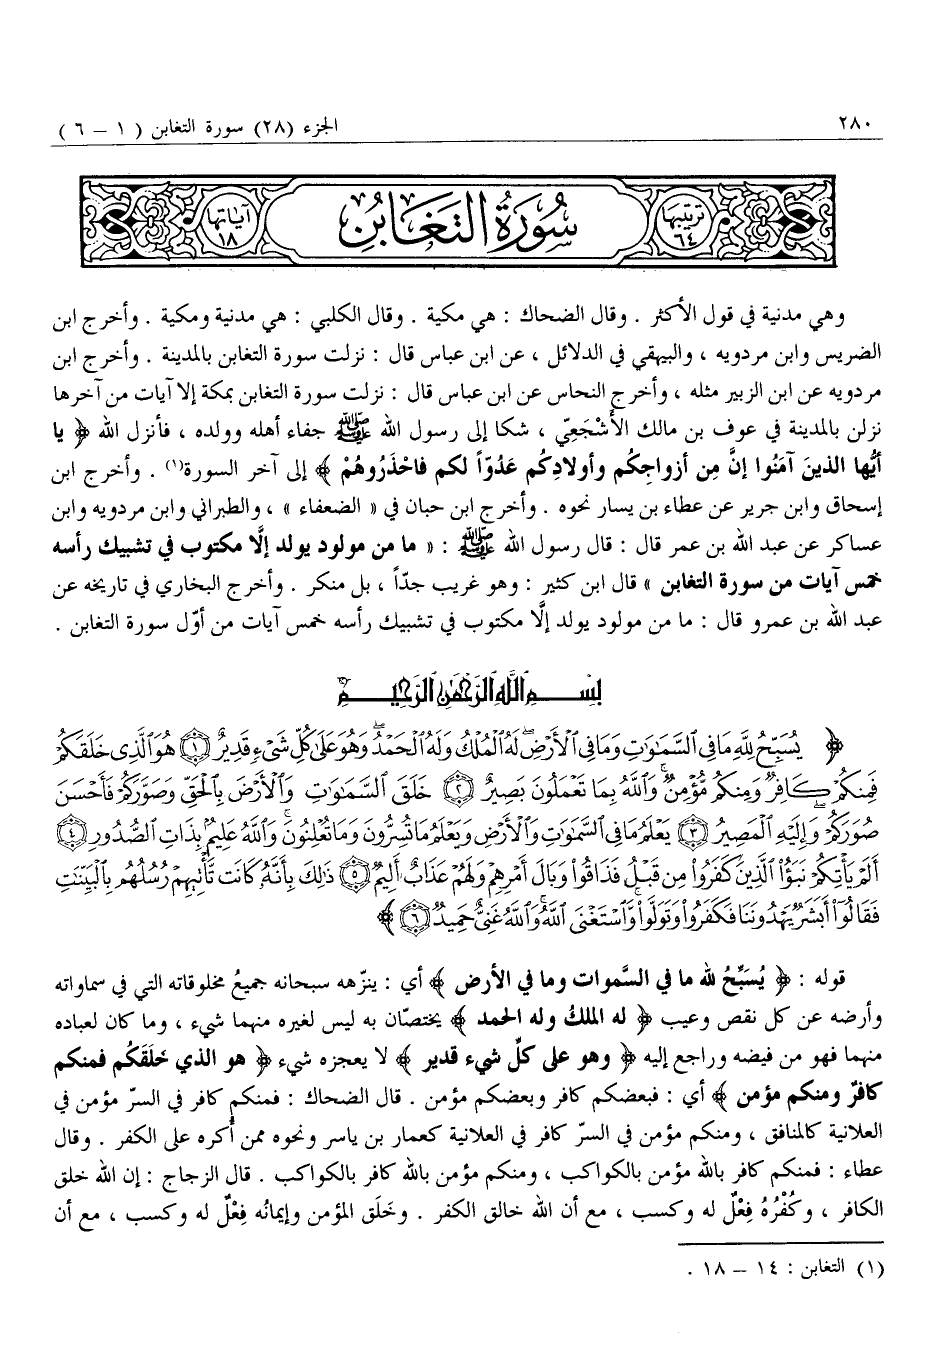 ٢٨٠
الجزء (٢٨) سورة التغابن ( ١ – ٦ )
ترتيبها ٦٤
سُورَةُ التَغَابُنِ
آياتها ١٨
وهي مدنية في قول الأكثر . وقال الضحاك : هي مكية . وقال الكلبي : هي مدنية ومكية . وأخرج ابن
الضريس وابن مردويه ، والبيهقي في الدلائل ، عن ابن عباس قال : نزلت سورة التغابن بالمدينة . وأخرج ابن
مردويه عن ابن الزبير مثله ، وأخرج النحاس عن ابن عباس قال : نزلت سورة التغابن بمكة إلا آيات من آخرها
نزلن بالمدينة في عوف بن مالك الأَشْجَعِيّ ، شكا إلى رسول الله ﷺ جفاء أهله وولده ، فأنزل الله ﴿ يا
أيُّها الذينَ آمَنُوا إنَّ مِن أزواجِكُم وأولادِكُم عَدُوّاً لكم فاحْذَرُوهُمْ ﴾ إلى آخر السورة(١) . وأخرج ابن
إسحاق وابن جرير عن عطاء بن يسار نحوه . وأخرج ابن حبان في « الضعفاء » ، والطبراني وابن مردويه وابن
عساكر عن عبد الله بن عمر قال : قال رسول الله ﷺ : « ما من مولود يولد إلَّا مكتوب في تشبيك رأسه
خمس آيات من سورة التغابن » قال ابن كثير : وهو غريب جدّاً ، بل منكر . وأخرج البخاري في تاريخه عن
عبد الله بن عمرو قال : ما من مولود يولد إلَّا مكتوب في تشبيك رأسه خمس آيات من أوّل سورة التغابن .
بِسْمِ ٱللَّهِ ٱلرَّحْمَٰنِ ٱلرَّحِيمِ
﴿ يُسَبِّحُ لِلَّهِ مَا فِى ٱلسَّمَٰوَٰتِ وَمَا فِى ٱلْأَرْضِ ۖ لَهُ ٱلْمُلْكُ وَلَهُ ٱلْحَمْدُ ۖ وَهُوَ عَلَىٰ كُلِّ شَىْءٍ قَدِيرٌ ١ هُوَ ٱلَّذِى خَلَقَكُمْ
فَمِنكُمْ كَافِرٌ وَمِنكُم مُّؤْمِنٌ ۚ وَٱللَّهُ بِمَا تَعْمَلُونَ بَصِيرٌ ٢ خَلَقَ ٱلسَّمَٰوَٰتِ وَٱلْأَرْضَ بِٱلْحَقِّ وَصَوَّرَكُمْ فَأَحْسَنَ
صُوَرَكُمْ ۖ وَإِلَيْهِ ٱلْمَصِيرُ ٣ يَعْلَمُ مَا فِى ٱلسَّمَٰوَٰتِ وَٱلْأَرْضِ وَيَعْلَمُ مَا تُسِرُّونَ وَمَا تُعْلِنُونَ ۚ وَٱللَّهُ عَلِيمٌۢ بِذَاتِ ٱلصُّدُورِ ٤
أَلَمْ يَأْتِكُمْ نَبَؤُا۟ ٱلَّذِينَ كَفَرُوا۟ مِن قَبْلُ فَذَاقُوا۟ وَبَالَ أَمْرِهِمْ وَلَهُمْ عَذَابٌ أَلِيمٌ ٥ ذَٰلِكَ بِأَنَّهُۥ كَانَت تَّأْتِيهِمْ رُسُلُهُم بِٱلْبَيِّنَٰتِ
فَقَالُوٓا۟ أَبَشَرٌ يَهْدُونَنَا فَكَفَرُوا۟ وَتَوَلَّوا۟ ۚ وَّٱسْتَغْنَى ٱللَّهُ ۚ وَٱللَّهُ غَنِىٌّ حَمِيدٌ ٦ ﴾
قوله : ﴿ يُسَبِّحُ لله ما في السَّموات وما في الأرض ﴾ أي : ينزّهه سبحانه جميعُ مخلوقاته التي في سماواته
وأرضه عن كل نقص وعيب ﴿ له الملكُ وله الحمد ﴾ يختصّان به ليس لغيره منهما شيء ، وما كان لعباده
منهما فهو من فيضه وراجع إليه ﴿ وهو على كلِّ شيء قدير ﴾ لا يعجزه شيء ﴿ هو الذي خَلَقَكُم فمنكم
كافرٌ ومنكم مؤمن ﴾ أي : فبعضكم كافر وبعضكم مؤمن . قال الضحاك : فمنكم كافر في السرّ مؤمن في
العلانية كالمنافق ، ومنكم مؤمن في السرّ كافر في العلانية كعمار بن ياسر ونحوه ممن أُكره على الكفر . وقال
عطاء : فمنكم كافر بالله مؤمن بالكواكب ، ومنكم مؤمن بالله كافر بالكواكب . قال الزجاج : إن الله خلق
الكافر ، وكُفْرُهُ فِعْلٌ له وكسب ، مع أن الله خالق الكفر . وخَلَق المؤمن وإيمانُه فِعْلٌ له وكسب ، مع أن
(١) التغابن : ١٤ – ١٨ .